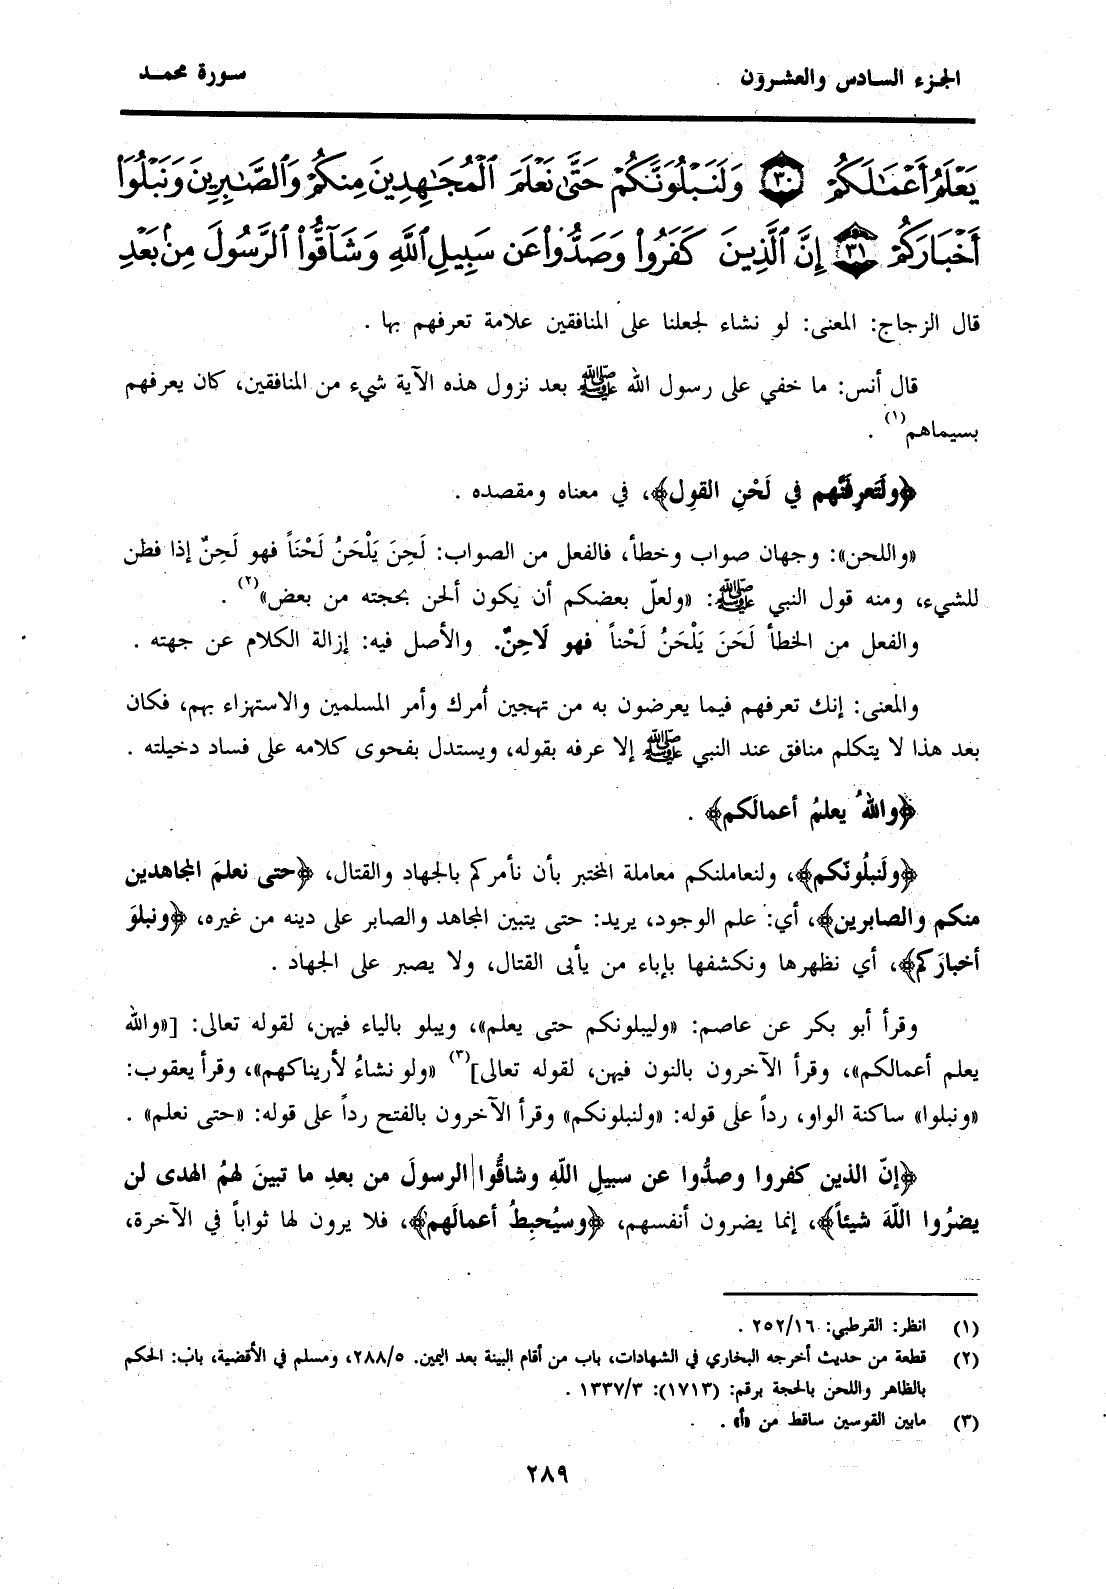 الجزء السادس والعشرون
سورة محمد
يَعْلَمُ أَعْمَـٰلَكُمْ ﴿٣٠﴾ وَلَنَبْلُوَنَّكُمْ حَتَّىٰ نَعْلَمَ ٱلْمُجَـٰهِدِينَ مِنكُمْ وَٱلصَّـٰبِرِينَ وَنَبْلُوَا۟
أَخْبَارَكُمْ ﴿٣١﴾ إِنَّ ٱلَّذِينَ كَفَرُوا۟ وَصَدُّوا۟ عَن سَبِيلِ ٱللَّهِ وَشَآقُّوا۟ ٱلرَّسُولَ مِنۢ بَعْدِ
قال الزجاج: المعنى: لو نشاء لجعلنا على المنافقين علامة تعرفهم بها .
قال أنس: ما خفي على رسول الله ﷺ بعد نزول هذه الآية شيء من المنافقين، كان يعرفهم
بسيماهم(١) .
﴿ولَتَعرِفَنَّهم في لَحْنِ القولِ﴾، في معناه ومقصده .
«واللحن»: وجهان صواب وخطأ، فالفعل من الصواب: لَحِنَ يَلْحَنُ لَحْنَاً فهو لَحِنٌ إذا فطن
للشيء، ومنه قول النبي ﷺ: «ولعلّ بعضكم أن يكون ألحن بحجته من بعض»(٢) .
والفعل من الخطأ لَحَنَ يَلْحَنُ لَحْناً فهو لَاحِنٌ. والأصل فيه: إزالة الكلام عن جهته .
والمعنى: إنك تعرفهم فيما يعرضون به من تهجين أمرك وأمر المسلمين والاستهزاء بهم، فكان
بعد هذا لا يتكلم منافق عند النبي ﷺ إلا عرفه بقوله، ويستدل بفحوى كلامه على فساد دخيلته .
﴿واللهُ يعلمُ أعمالَكم﴾ .
﴿ولَنبلُونّكم﴾، ولنعاملنكم معاملة المختبر بأن نأمركم بالجهاد والقتال، ﴿حتى نعلمَ المجاهدين
منكم والصابرين﴾، أي: علم الوجود، يريد: حتى يتبين المجاهد والصابر على دينه من غيره، ﴿ونبلوَ
أخبارَكم﴾، أي نظهرها ونكشفها بإباء من يأبى القتال، ولا يصبر على الجهاد .
وقرأ أبو بكر عن عاصم: «وليبلونكم حتى يعلم»، ويبلو بالياء فيهن، لقوله تعالى: [«والله
يعلم أعمالكم»، وقرأ الآخرون بالنون فيهن، لقوله تعالى](٣) «ولو نشاءُ لأريناكهم»، وقرأ يعقوب:
«ونبلوا» ساكنة الواو، رداً على قوله: «ولنبلونكم» وقرأ الآخرون بالفتح رداً على قوله: «حتى نعلم» .
﴿إنّ الذين كفروا وصدُّوا عن سبيلِ اللّهِ وشاقُّوا الرسولَ من بعدِ ما تبينَ لهمُ الهدى لن
يضرُوا اللّهَ شيئاً﴾، إنما يضرون أنفسهم، ﴿وسيُحبِطُ أعمالَهم﴾، فلا يرون لها ثواباً في الآخرة،
(١) انظر: القرطبي: ٢٥٢/١٦ .
(٢) قطعة من حديث أخرجه البخاري في الشهادات، باب من أقام البينة بعد اليمين. ٢٨٨/٥، ومسلم في الأقضية، باب: الحكم
بالظاهر واللحن بالحجة برقم: (١٧١٣): ١٣٣٧/٣ .
(٣) مابين القوسين ساقط من «أ» .
٢٨٩